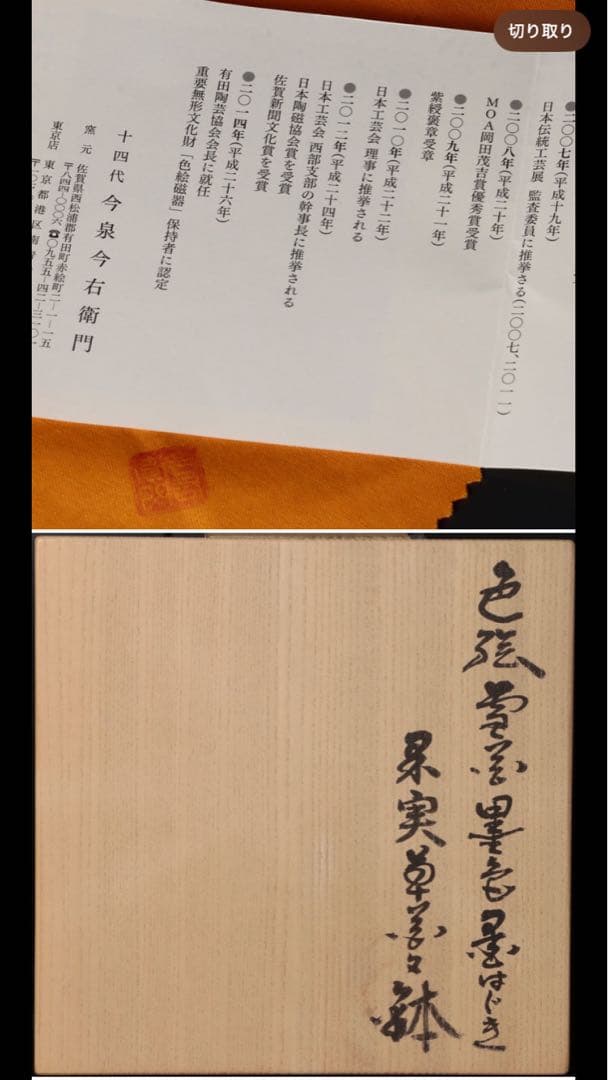 切り取り
●二〇〇七年(平成十九年)
日本伝統工芸展 監査委員に推挙さる(二〇〇七、二〇一一)
●二〇〇八年(平成二十年)
MOA岡田茂吉賞優秀賞受賞
●二〇〇九年(平成二十一年)
紫綬褒章受章
●二〇一〇年(平成二十二年)
日本工芸会 理事に推挙される
●二〇一二年(平成二十四年)
日本工芸会 西部支部の幹事長に推挙される
日本陶磁協会賞を受賞
佐賀新聞文化賞を受賞
●二〇一四年(平成二十六年)
有田陶芸協会会長に就任
重要無形文化財「色絵磁器」保持者に認定
十四代 今泉今右衛門
窯元 佐賀県西松浦郡有田町赤絵町二-一-一五
〒八四四-〇〇〇六 ☎〇九五五-四二-三一〇一
東京店 東京都港区南青
色絵雪花墨色墨はじき
果実草花文鉢